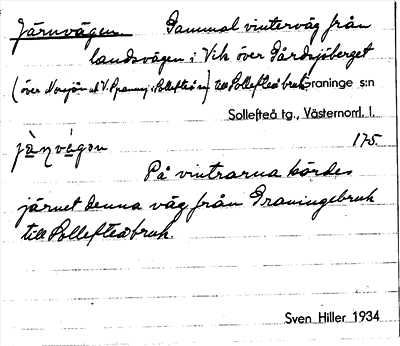 Järnvägen. Gammal vinterväg från
landsvägen i Vik över Gårdsjöberget
(över Norsjön till Sollefteåbruk. Graninge s:n
Sollefteå tg., Västernorrl. l.
175.
På vintrarna kördes
järnet denna väg från Graningebruk
till Sollefteåbruk.
Sven Hiller 1934